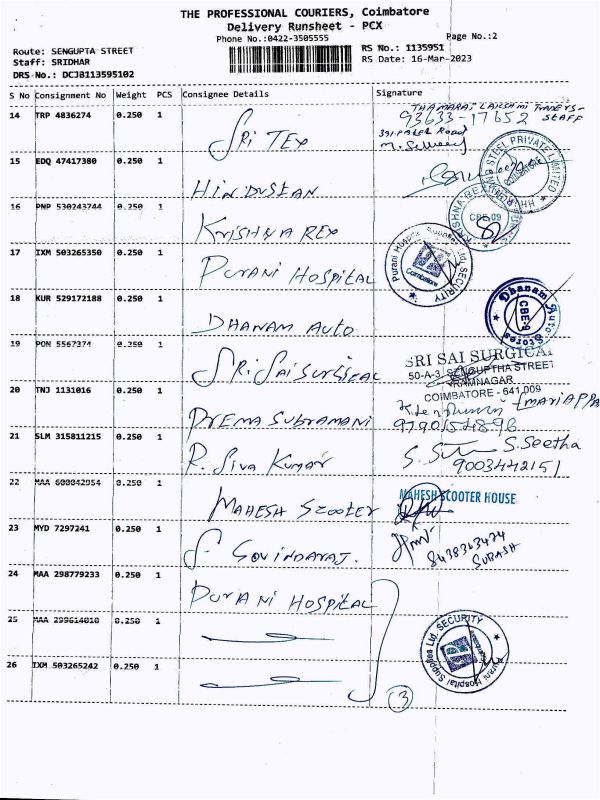 THE PROFESSIONAL COURIERS, Coimbatore
Delivery Runsheet - PCX
Phone No.:0422-3505555
Page No.:2
Route: SENGUPTA STREET
Staff: SRIDHAR
DRS No.: DCJB113595102
RS No.: 1135951
RS Date: 16-Mar-2023
S No Consignment No Weight PCS Consignee Details Signature
14 TRP 4836274 0.250 1 SRI TEX
THAMARAI LAKSHMI
STAFF
93633-17652
15 EDQ 47417380 0.250 1 HINDUSTAN
STEEL PRIVATE LIMITED
16 PNP 530243744 0.250 1 KRISHNA REX
CBE-09
17 IXM 503265350 0.250 1 PURANI HOSPITAL
Purani Hospital Supplies Ltd. SECURITY
Coimbatore
18 KUR 529172188 0.250 1 DHANAM AUTO
Dhanam Auto Stores
CBE-9
19 PON 5567374 0.250 1 SRI SAI SURGICAL
SRI SAI SURGICAL
50-A-3, SENGUPTHA STREET
RAMNAGAR
COIMBATORE - 641 009
20 TNJ 1131016 0.250 1 PREMA SUBRAMANI
9790154896
21 SLM 315811215 0.250 1 R. SIVA KUMAR
S. Seetha
9003442151
22 MAA 600042954 0.250 1 MAHESH SCOOTER
MAHESH SCOOTER HOUSE
23 MYD 7297241 0.250 1 S. GOVINDARAJ.
8438363474
SUBASH
24 MAA 298779233 0.250 1 PURANI HOSPITAL
25 MAA 299614010 0.250 1
Purani Hospital Supplies Ltd. SECURITY
26 IXM 503265242 0.250 1
3